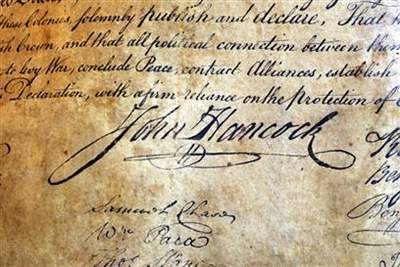 these Colonies, solemnly publish and declare, That th
sh Crown, and that all political connection between them
to levy War, conclude Peace, contract Alliances, establish
Declaration, with a firm reliance on the protection of
John Hancock
Samuel Chase
Wm Paca
Thos Stone
Ben